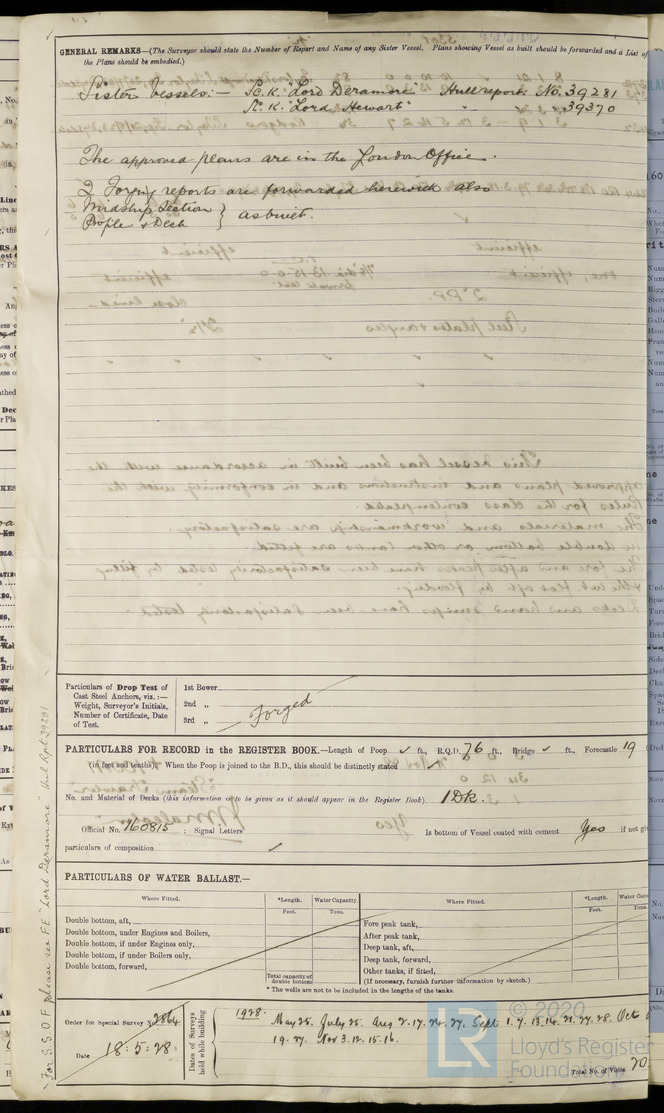 GENERAL REMARKS—(The Surveyor should state the Number of Report and Name of any Sister Vessel. Plans showing Vessel as built should be forwarded and a List of
the Plans should be embodied.)
Sister Vessels:- S.K. "Lord Deramore" Hull report No. 39281
S.K. "Lord Hewart" " " 39370
The approved plans are in the London Office.
2 Forging reports are forwarded herewith also
Midship Section } as built.
Profile & Deck
Particulars of Drop Test of
Cast Steel Anchors, viz. :—
Weight, Surveyor's Initials,
Number of Certificate, Date
of Test.
1st Bower
2nd "
3rd "
Forged
PARTICULARS FOR RECORD in the REGISTER BOOK.—Length of Poop ✓ ft., R.Q.D. 76 ft., Bridge ✓ ft., Forecastle 19
(in feet and tenths). When the Poop is joined to the B.D., this should be distinctly stated
No. and Material of Decks (this information is to be given as it should appear in the Register Book) 1 Dk.
Official No. 160815 ; Signal Letters Is bottom of Vessel coated with cement Yes if not
particulars of composition ✓
PARTICULARS OF WATER BALLAST.—
Where Fitted. *Length. Water Capacity. Where Fitted. *Length.
Feet. Tons. Feet. Tons.
Double bottom, aft, Fore peak tank,
Double bottom, under Engines and Boilers, After peak tank,
Double bottom, if under Engines only, Deep tank, aft,
Double bottom, if under Boilers only, Deep tank, forward,
Double bottom, forward, Other tanks, if fitted,
Total capacity of double bottom (If necessary, furnish further information by sketch.)
* The wells are not to be included in the lengths of the tanks.
Order for Special Survey No. 2864
Date 18.5.28
Dates of Surveys held while building
1928. May 25. July 25. Aug 2.17.22.27. Sept 1.7.13.14.21.24.28. Oct
19.27. Nov 3.12.15.16.
Total No. of Visits 20
For S.S. O.F. please see F.E. "Lord Deramore" Hull Rpt 39281
© 2020
LR
Lloyd's Register
Foundation